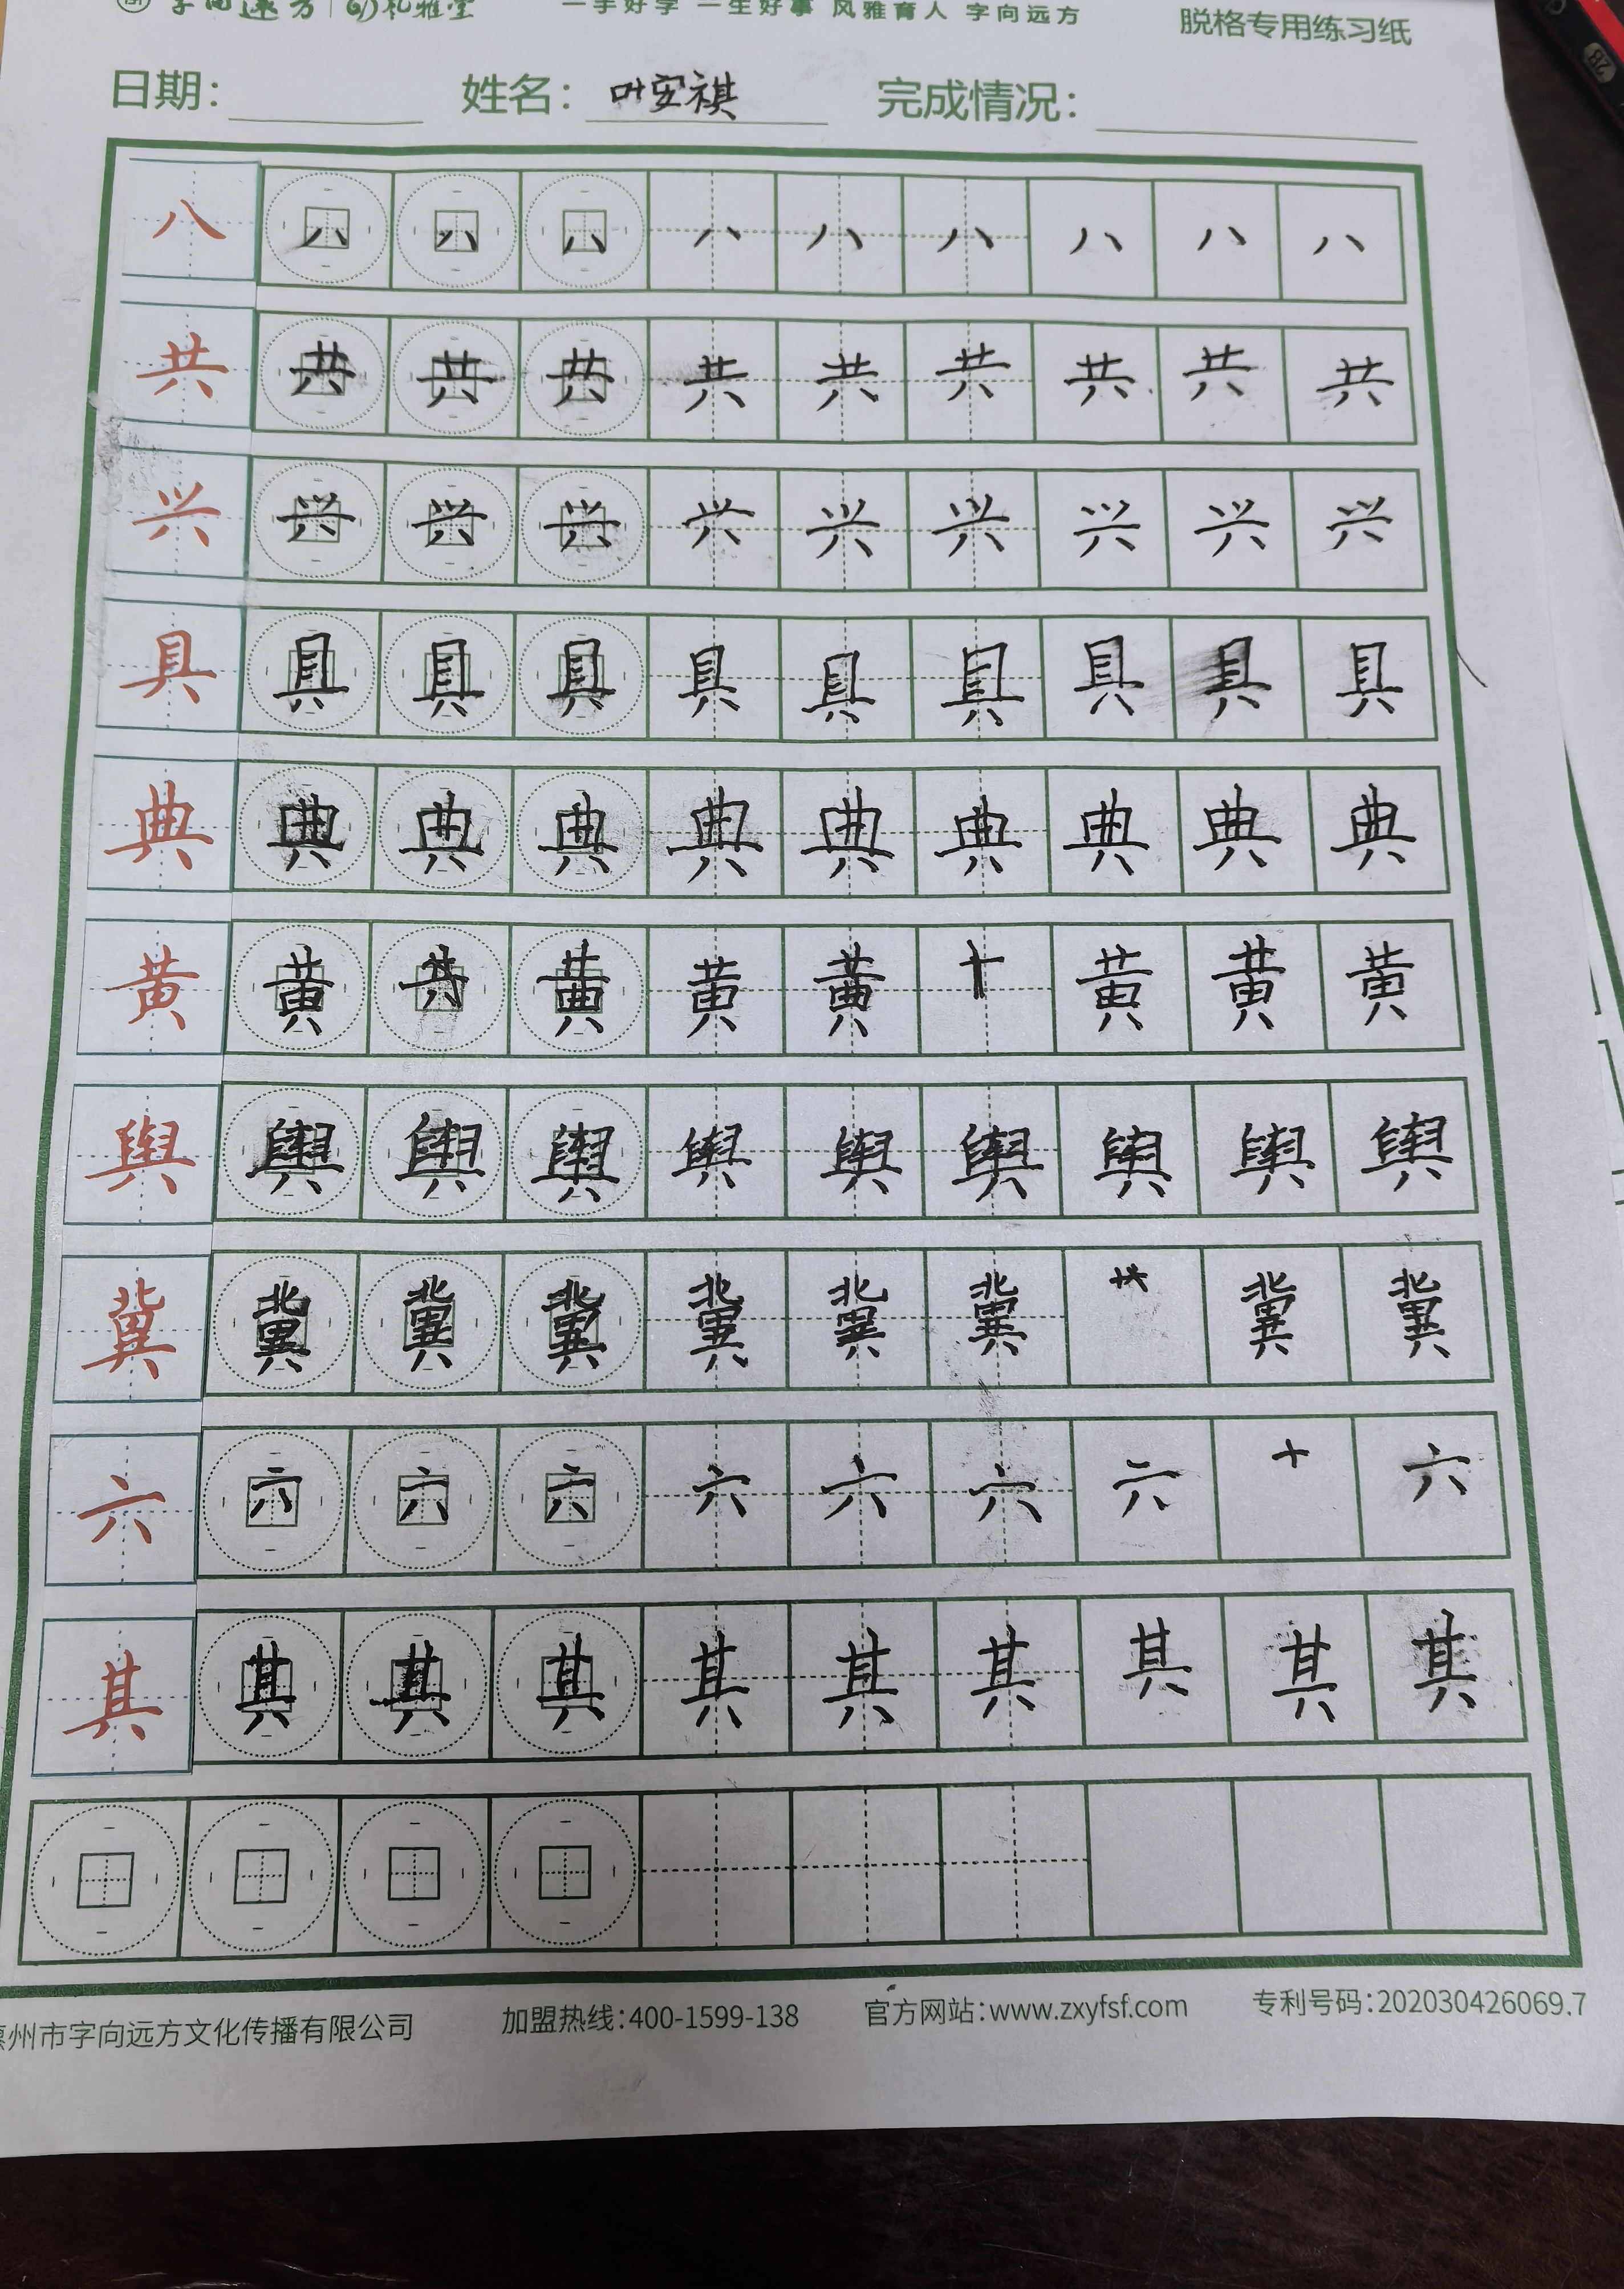 字向远方 礼雅堂 一手好字 一生好事 风雅育人 字向远方 脱格专用练习纸
日期： 姓名：叶安祺 完成情况：
八 八 八 八 八 八 八 八 八 八
共 共 共 共 共 共 共 共 共 共
兴 兴 兴 兴 兴 兴 兴 兴 兴 兴
具 具 具 具 具 具 具 具 具 具
典 典 典 典 典 典 典 典 典 典
黄 黄 黄 黄 黄 十 黄 黄 黄
舆 舆 舆 舆 舆 舆 舆 舆 舆 舆
冀 冀 冀 冀 冀 冀 冀 冀 冀
六 六 六 六 六 六 六 六 十 六
其 其 其 其 其 其 其 其 其 其
州市字向远方文化传播有限公司 加盟热线：400-1599-138 官方网站：www.zxyfsf.com 专利号码：202030426069.7
2B